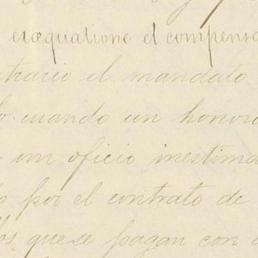 exæquatione et compensa
trario el mandato
cuando un honora
un oficio inestima
por el contrato de
que se pagan con